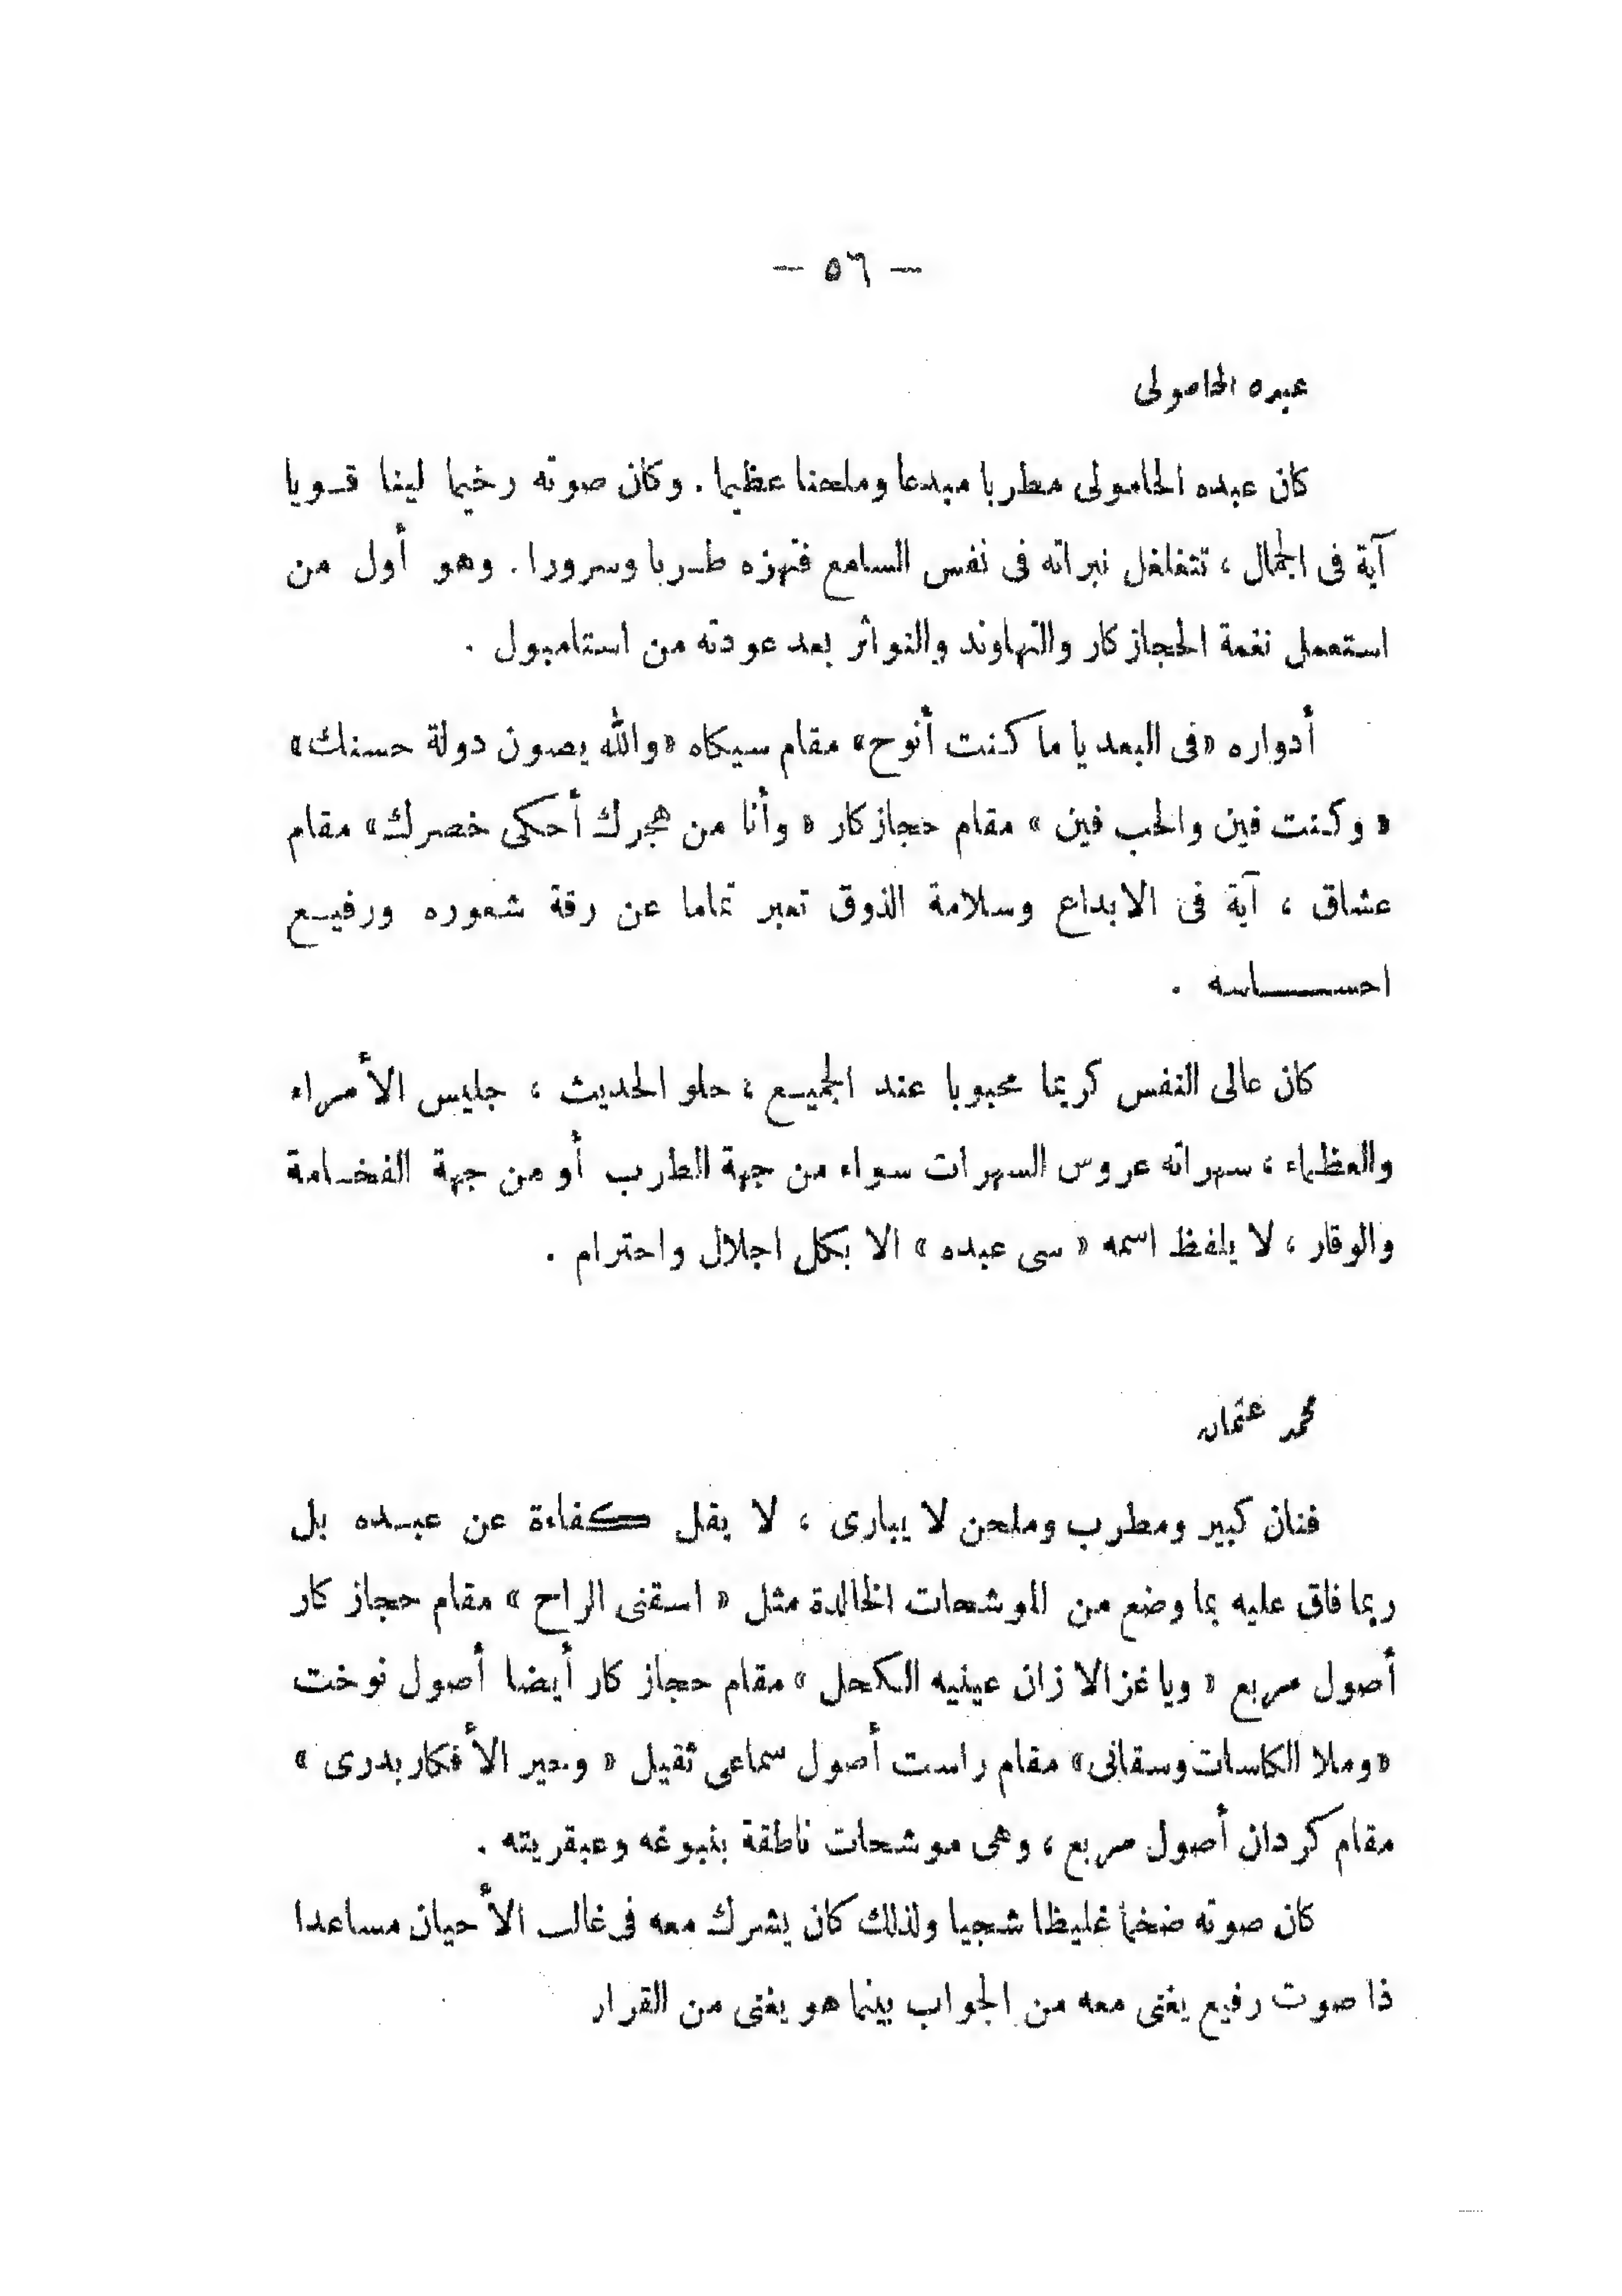 — ٥٦ —
عبده الحامولى
كان عبده الحامولى مطربا مبدعا وملحنا عظيما . وكان صوته رخيما لينا قـويا
آية فى الجمال ، تتغلغل نبراته فى نفس السامع فتهزه طـربا وسرورا . وهو أول من
استعمل نغمة الحجاز كار والنهاوند والنواثر بعد عودته من استامبول .
أدواره «فى البعد يا ما كنت أنوح» مقام سيكاه «والله يصون دولة حسنك»
« وكنت فين والحب فين » مقام حجاز كار « وأنا من هجرك أحكى خصرك» مقام
عشاق ، آية فى الابداع وسلامة الذوق تعبر تماما عن رقة شعوره ورفيـع
احســـــاسه .
كان عالى النفس كريما محبوبا عند الجميـع ، حلو الحديث ، جليس الأمراء
والعظماء ، سهراته عروس السهرات سواء من جهة الطرب أو من جهة الفخـامة
والوقار ، لا يلفظ اسمه « سى عبده » الا بكل اجلال واحترام .
محمد عثمان
فنان كبير ومطرب وملحن لا يبارى ، لا يقل كفاءة عن عبـده بل
ربما فاق عليه بما وضع من الموشحات الخالدة مثل « اسقنى الراح » مقام حجاز كار
أصول مربع « ويا غزالا زان عينيه الكحل » مقام حجاز كار أيضا أصول نوخت
«وملا الكاسات وسقانى» مقام راست أصول سماعى ثقيل « وحير الأفكار بدرى »
مقام كردان أصول مربع ، وهى موشحات ناطقة بنبوغه وعبقريته .
كان صوته ضخما غليظا شجيا ولذلك كان يشرك معه فى غالب الأحيان مساعدا
ذا صوت رفيع يغنى معه من الجواب بينما هو يغنى من القرار